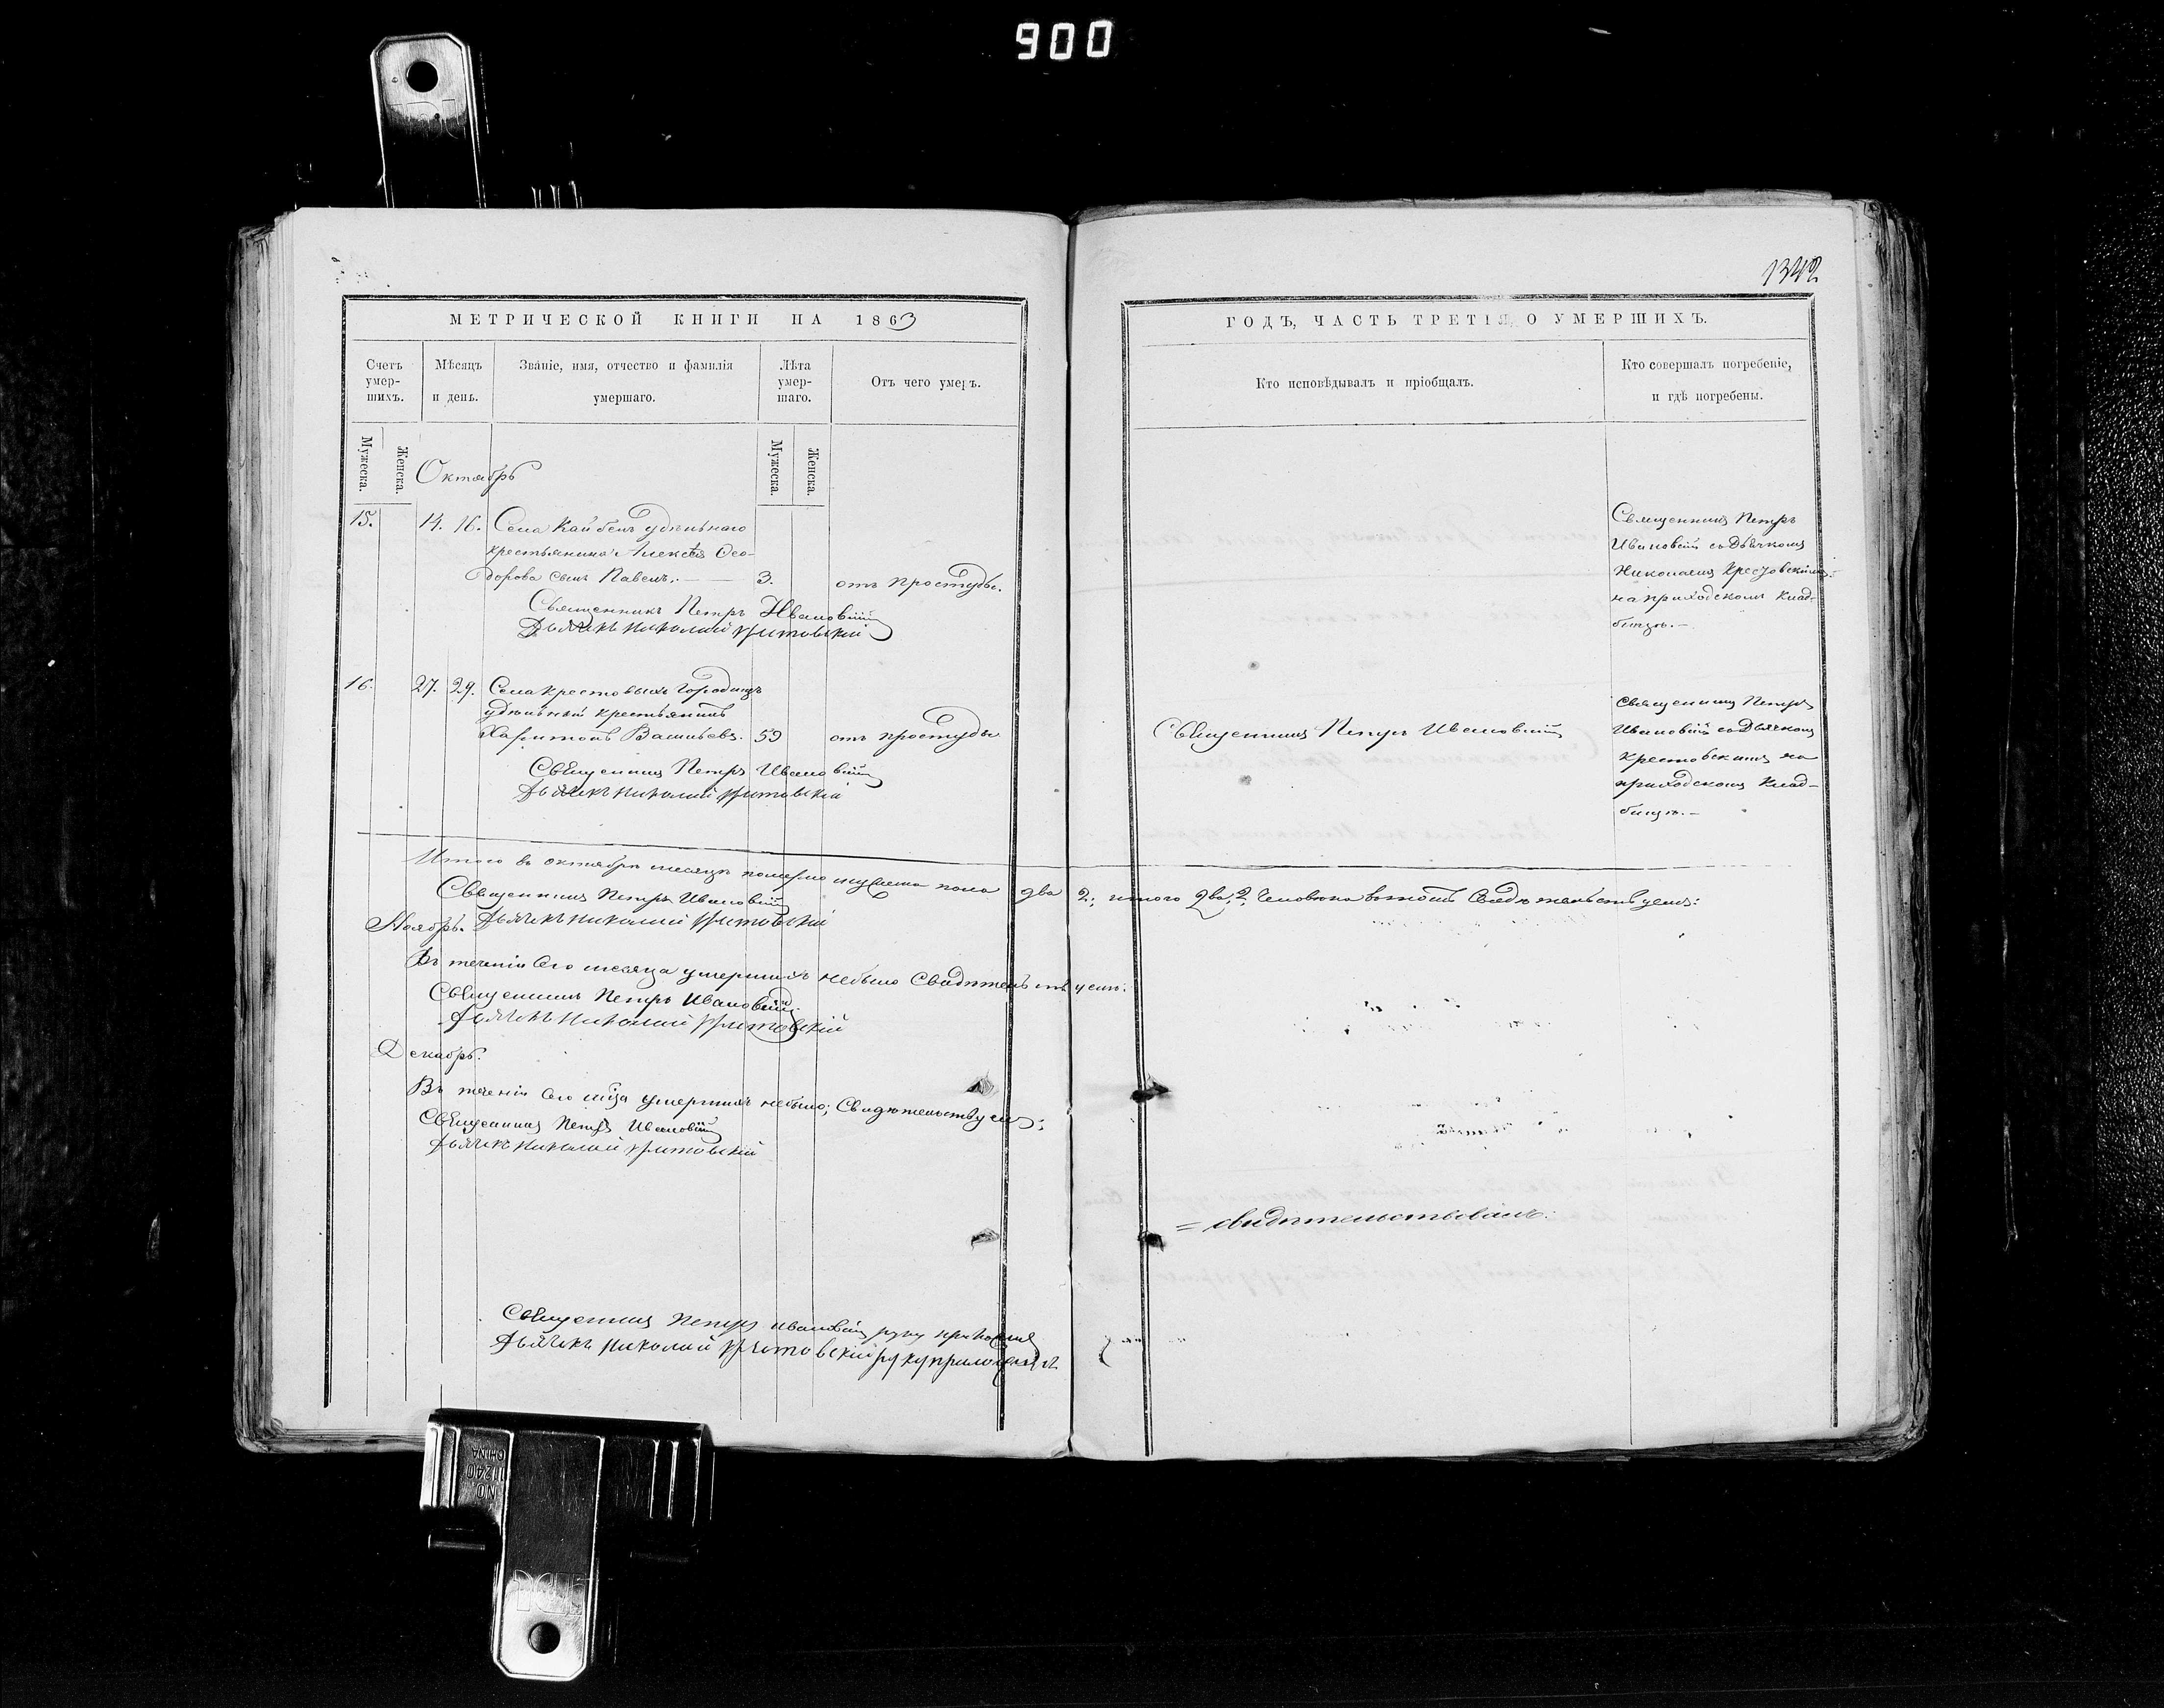 900
1342
МЕТРИЧЕСКОЙ КНИГИ НА 1863
ГОДЪ, ЧАСТЬ ТРЕТІЯ, О УМЕРШИХЪ.
Счетъ умер-шихъ.
Мѣсяцъ и день.
Званіе, имя, отчество и фамилія умершаго.
Лѣта умер-шаго.
Отъ чего умеръ.
Кто исповѣдывалъ и пріобщалъ.
Кто совершалъ погребеніе, и гдѣ погребены.
Мужеска.
Женска.
Мужеска.
Женска.
Октябрь
15. 14. 16. Села Кайбелъ удѣльнаго
крестьянина Алексѣя Ѳео-
дорова сынъ Павелъ. — 3. отъ простуды.
Священникъ Петръ Ивановскій
Дьячекъ Николай Крестовскій
Священникъ Петръ
Ивановскій съ Дьячкомъ
Николаемъ Крестовскимъ
на приходскомъ клад-
бищѣ. —
16. 27. 29. Села Крестовыхъ Городищъ
удѣльный крестьянинъ
Харитонъ Васильевъ. 59 отъ простуды
Священникъ Петръ Ивановскій
Дьячекъ Николай Крестовскій
Священникъ Петръ Ивановскій
Священникъ Петръ
Ивановскій съ Дьячкомъ
Крестовскимъ на
приходскомъ клад-
бищѣ. —
Итого въ октябрѣ месяцѣ померло мужеска пола два 2; итого два, 2, человека въ томъ Свидѣтельствуемъ:
Священникъ Петръ Ивановскій
Ноябрь. Дьячекъ Николай Крестовскій
Въ теченіи сего месяца умершихъ небыло Свидѣтельствуемъ.
Священникъ Петръ Ивановскій
Дьячекъ Николай Крестовскій
Декабрь.
Въ теченіи сего мца умершихъ небыло; Свидѣтельствуемъ:
Священникъ Петръ Ивановскій
Дьячекъ Николай Крестовскій
= свидѣтельствовалъ:
Священникъ Петръ Ивановскій руку приложилъ
Дьячекъ Николай Крестовскій руку приложилъ
CHINA
11240
NO